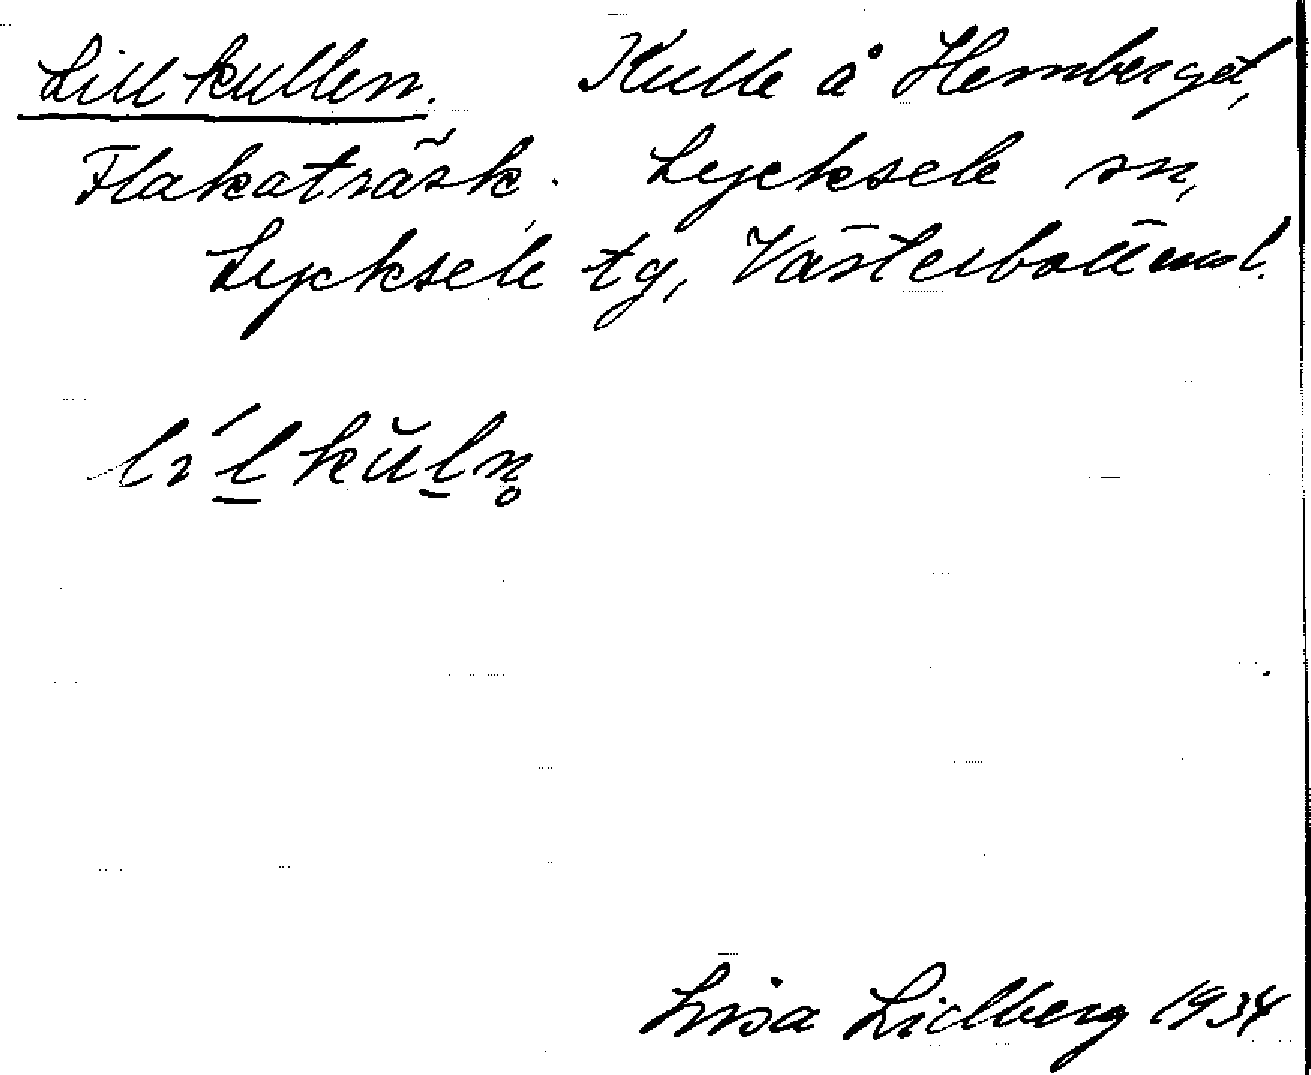 Lillkullen. Kulle å Hemberget,
Flakaträsk. Lycksele sn,
Lycksele tg, Västerbottens l.
lí̵l̲kŭl̲n̥
Lisa Lidberg 1934